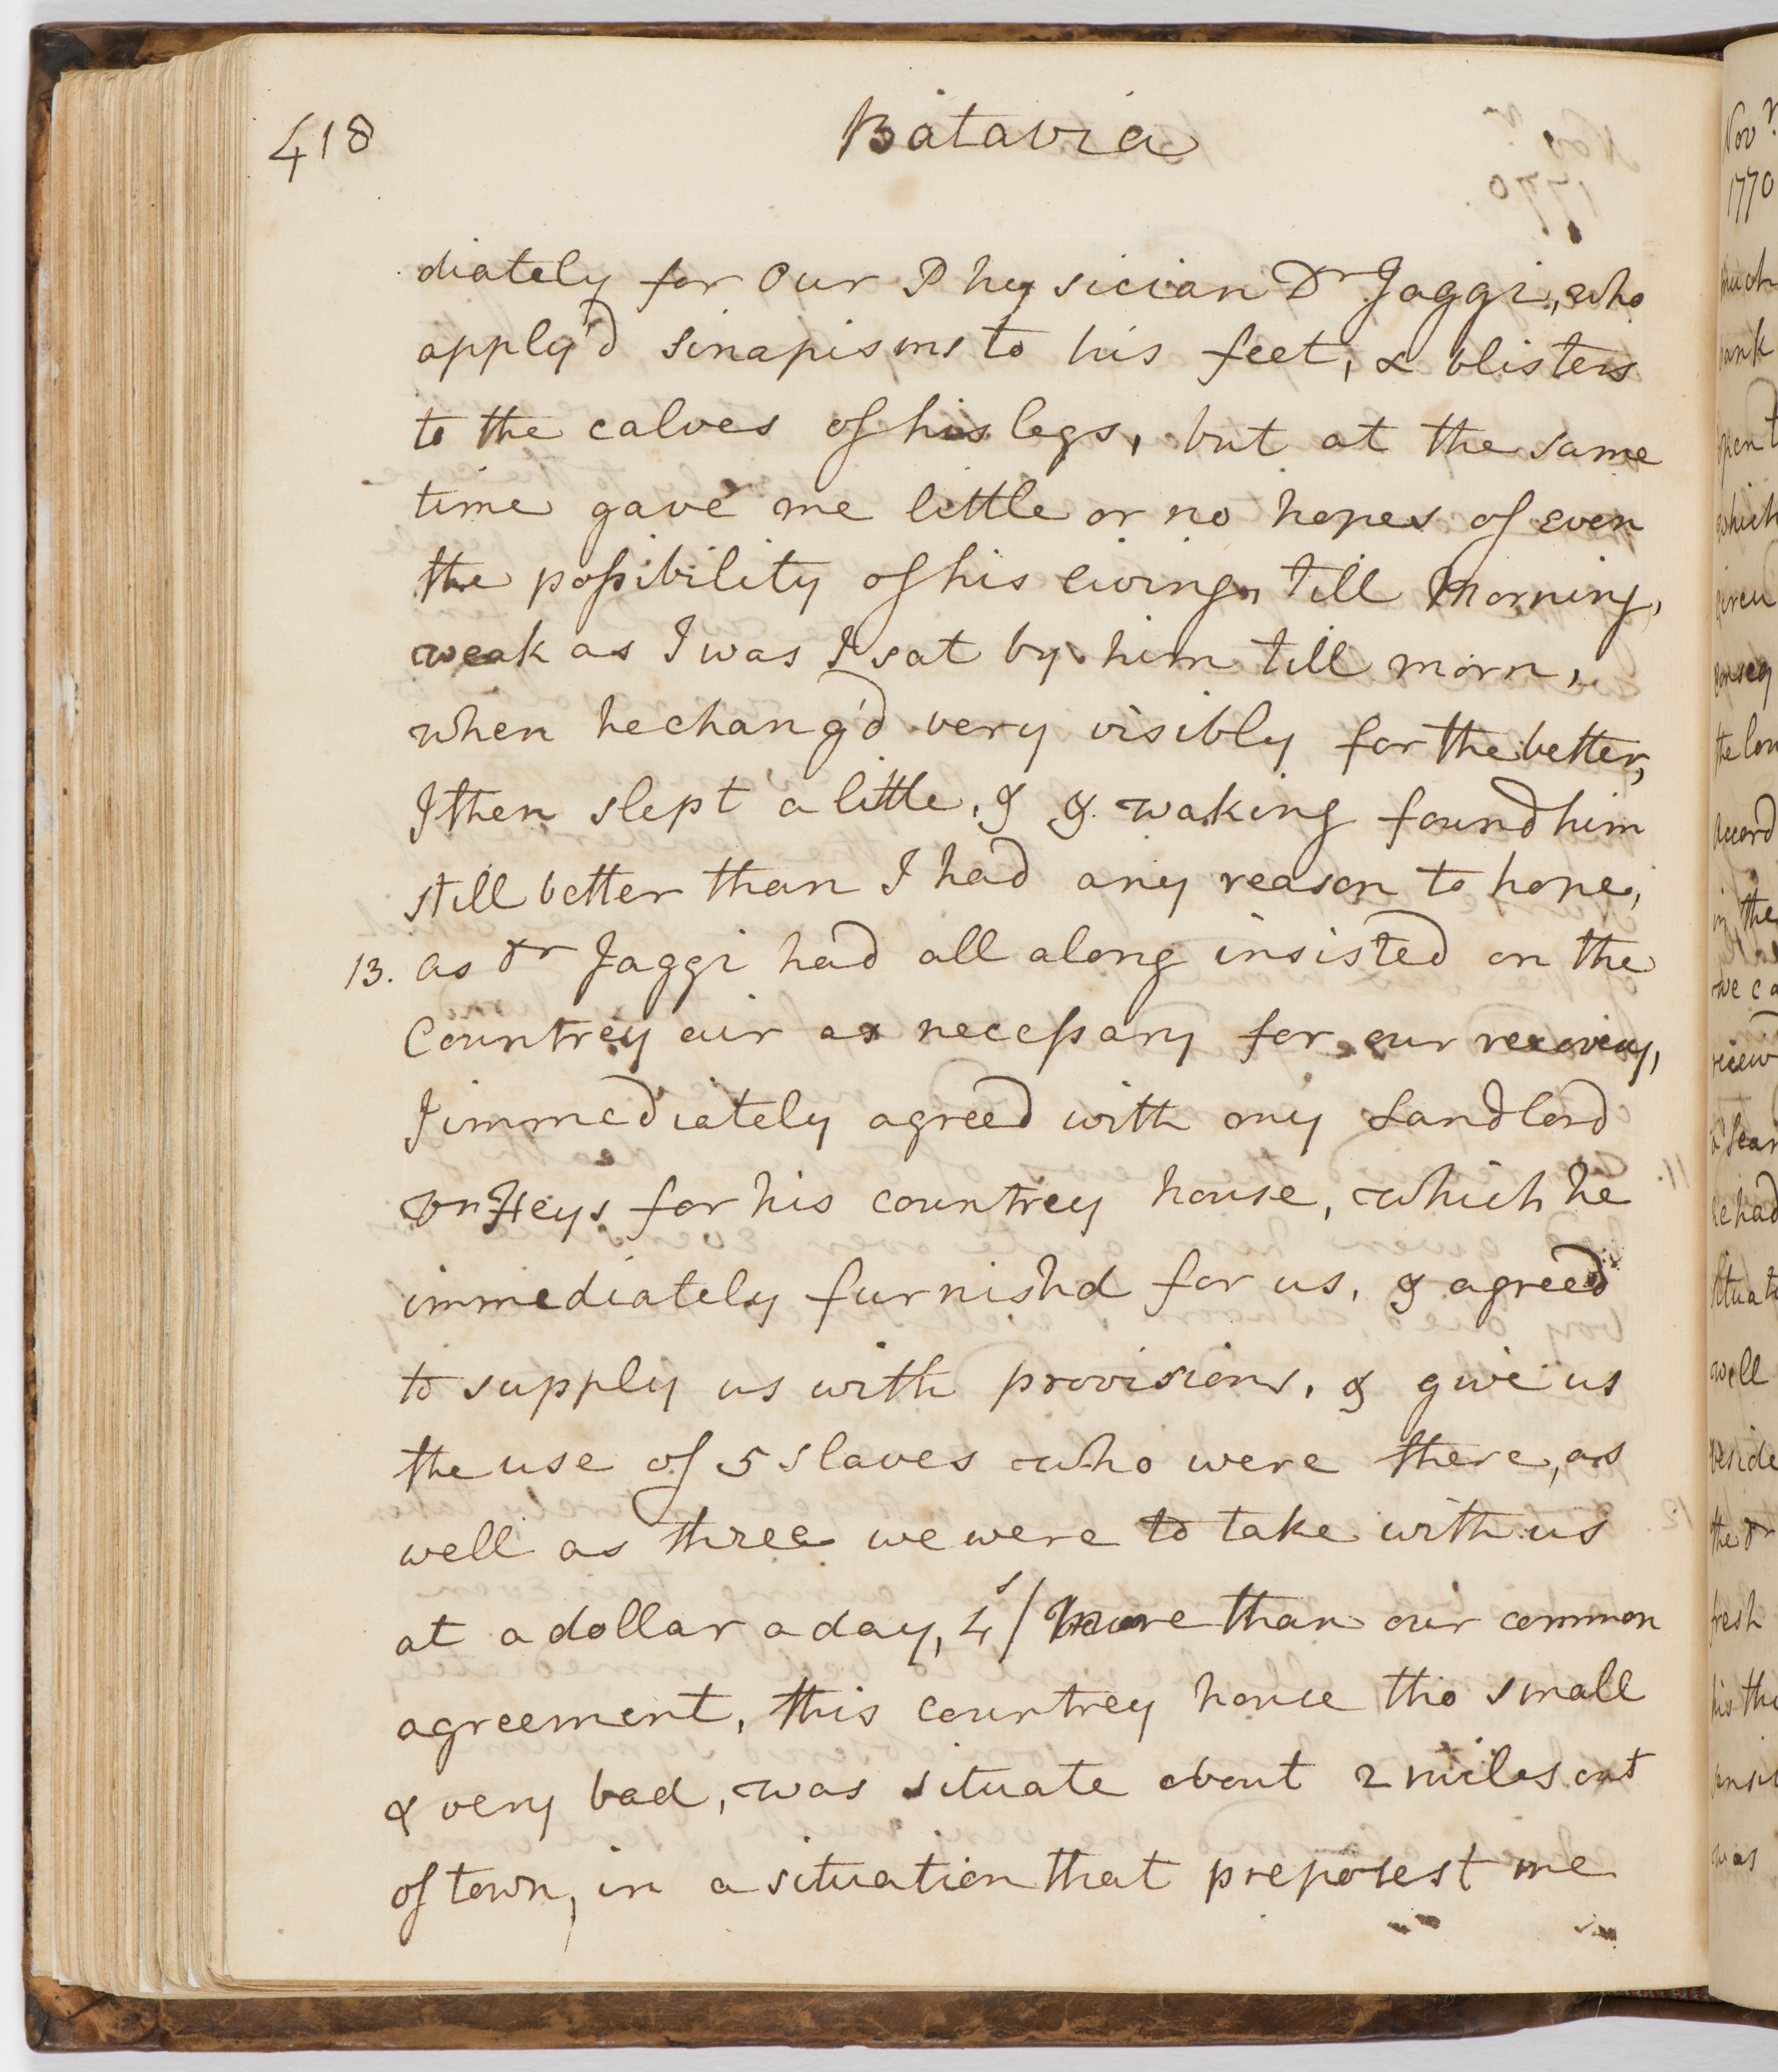 418
Batavia
diately for Our Physician Dr Jaggi, who
apply'd sinapisms to his feet, & blisters
to the calves of his legs, but at the same
time gave me little or no hopes of even
the possibility of his living till Morning,
weak as I was I sat by him till morn,
when he chang'd very visibly for the better,
I then slept a little, & & waking found him
still better than I had any reason to hope,
13. as Dr Jaggi had all along insisted on the
Countrey air as necessary for our recovery,
I immediately agreed with my Landlord
Vn Heys for his countrey house, which he
immediately furnishd for us, & agreed
to supply us with provisions, & give us
the use of 5 slaves who were there, as
well as three we were to take with us
at a dollar a day, 4s/ more than our common
agreement, this countrey house tho small
& very bad, was situate about 2 miles out
of town, in a situation that preposest me
Novr
1770